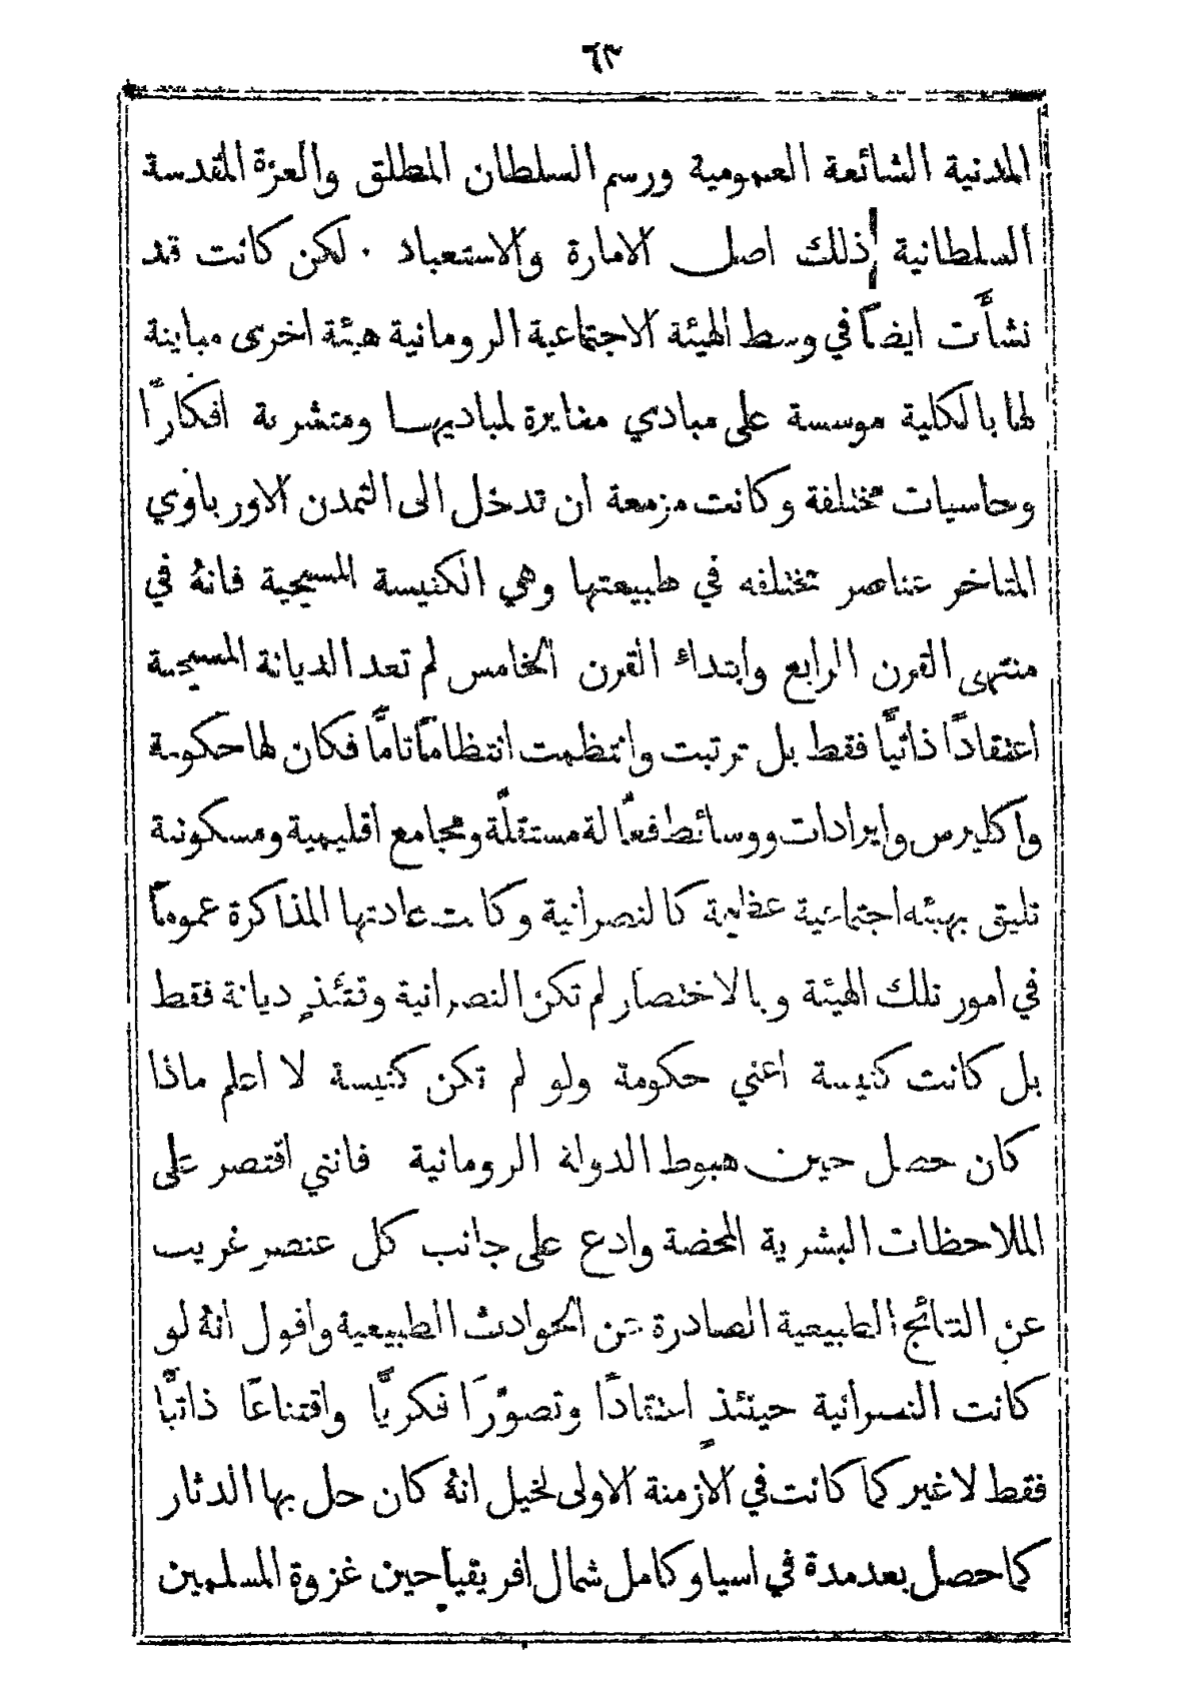 ٦٣
المدنية الشائعة العمومية ورسم السلطان المطلق والعزة المقدسة
السلطانية ذلك اصل الامارة والاستعباد . لكن كانت قد
نشأَت ايضاً في وسط الهيئة الاجتماعية الرومانية هيئة اخرى مباينة
لها بالكلية موسسة على مبادي مغايرة لمباديهـا ومنتشرة افكارًا
وحاسيات مختلفة وكانت مزمعة ان تدخل الى التمدن الاورباوي
المتاخر عناصر مختلفه في طبيعتها وهي الكنيسة المسيحية فانهُ في
منتهى القرن الرابع وابتداء القرن الخامس لم تعد الديانة المسيحية
اعتقادًا ذاتيًّا فقط بل ترتبت وانتظمت انتظاماً تامًّا فكان لها حكومة
واكليرس وايرادات ووسائط فعَّالة مستقلَّة ومجامع اقليمية ومسكونية
تليق بهيئه اجتماعية عظيمة كالنصرانية وكانت عادتها المذاكرة عموماً
في امور تلك الهيئة وبالاختصار لم تكن النصرانية وقتئذٍ ديانة فقط
بل كانت كنيسة اعني حكومة ولو لم تكن كنيسة لا اعلم ماذا
كان حصل حين هبوط الدولة الرومانية فانني اقتصر على
الملاحظات البشرية المحضة وادع على جانب كل عنصر غريب
عن النتائج الطبيعية الصادرة عن الحوادث الطبيعية واقول انهُ لو
كانت النصرانية حينئذٍ اعتقادًا وتصوّرًا فكريًّا واقتناعًا ذاتيًّا
فقط لا غير كما كانت في الازمنة الاولى لخيل انهُ كان حل بها الدثار
كما حصل بعد مدة في اسيا وكامل شمال افريقيا حين غزوة المسلمين